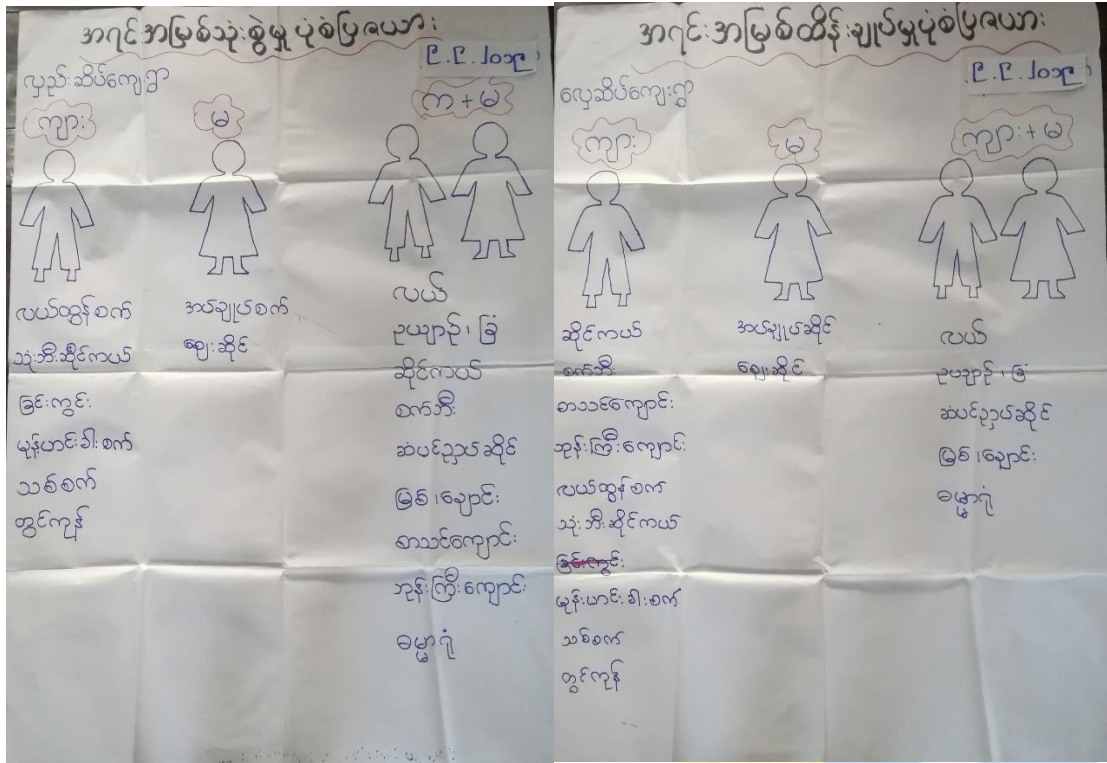 အရင်အမြစ်သုံးစွဲမှုပုံစံပြဇယား
၉.၉.၂၀၁၉
လှည်းဆိပ်ကျေးရွာ
ကျား
မ
က + မ
လယ်ထွန်စက်
သုံးဘီးဆိုင်ကယ်
ခြင်းကွင်း
မုန့်ဟင်းခါးစက်
သစ်စက်
တွင်ကုန်
အပ်ချုပ်စက်
ဈေးဆိုင်
လယ်
ဥယျာဉ်၊ ခြံ
ဆိုင်ကယ်
စက်ဘီး
ဆံပင်ညှပ်ဆိုင်
မြစ်၊ချောင်း
စာသင်ကျောင်း
ဘုန်းကြီးကျောင်း
ဓမ္မာရုံ
အရင်းအမြစ်ထိန်းချုပ်မှုပုံစံပြဇယား
၉.၉.၂၀၁၉
လှေဆိပ်ကျေးရွာ
ကျား
မ
ကျား + မ
ဆိုင်ကယ်
စက်ဘီး
စာသင်ကျောင်း
ဘုန်းကြီးကျောင်း
လယ်ထွန်စက်
သုံးဘီးဆိုင်ကယ်
ခြင်းကွင်း
မုန့်ဟင်းခါးစက်
သစ်စက်
တွင်ကုန်
အပ်ချုပ်ဆိုင်
ဈေးဆိုင်
လယ်
ဥယျာဉ်၊ ခြံ
ဆံပင်ညှပ်ဆိုင်
မြစ်၊ချောင်း
ဓမ္မာရုံ